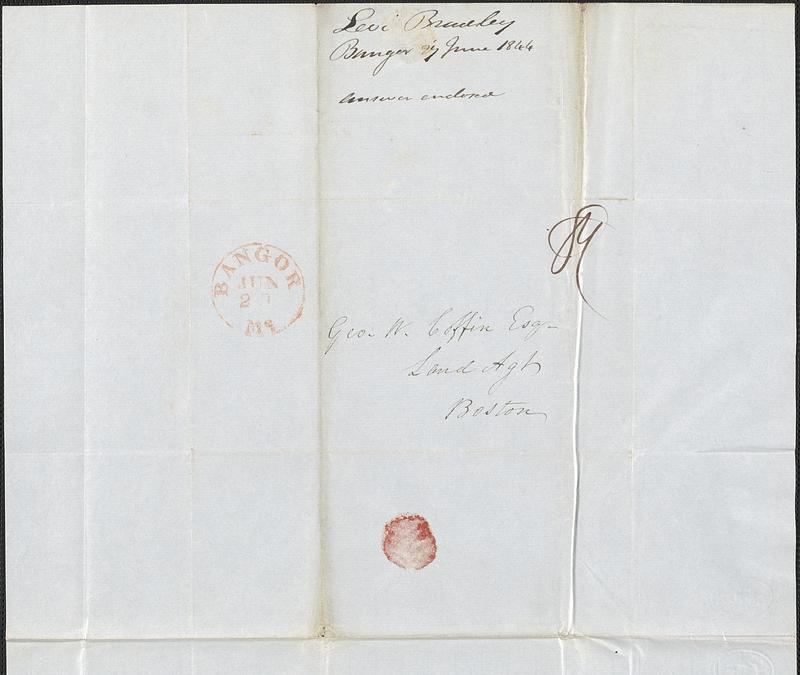 Levi Bradley
Bangor 27 June 1844
answer enclosed
BANGOR
JUN
Me
Geo. W. Coffin Esq
Land Agt
Boston